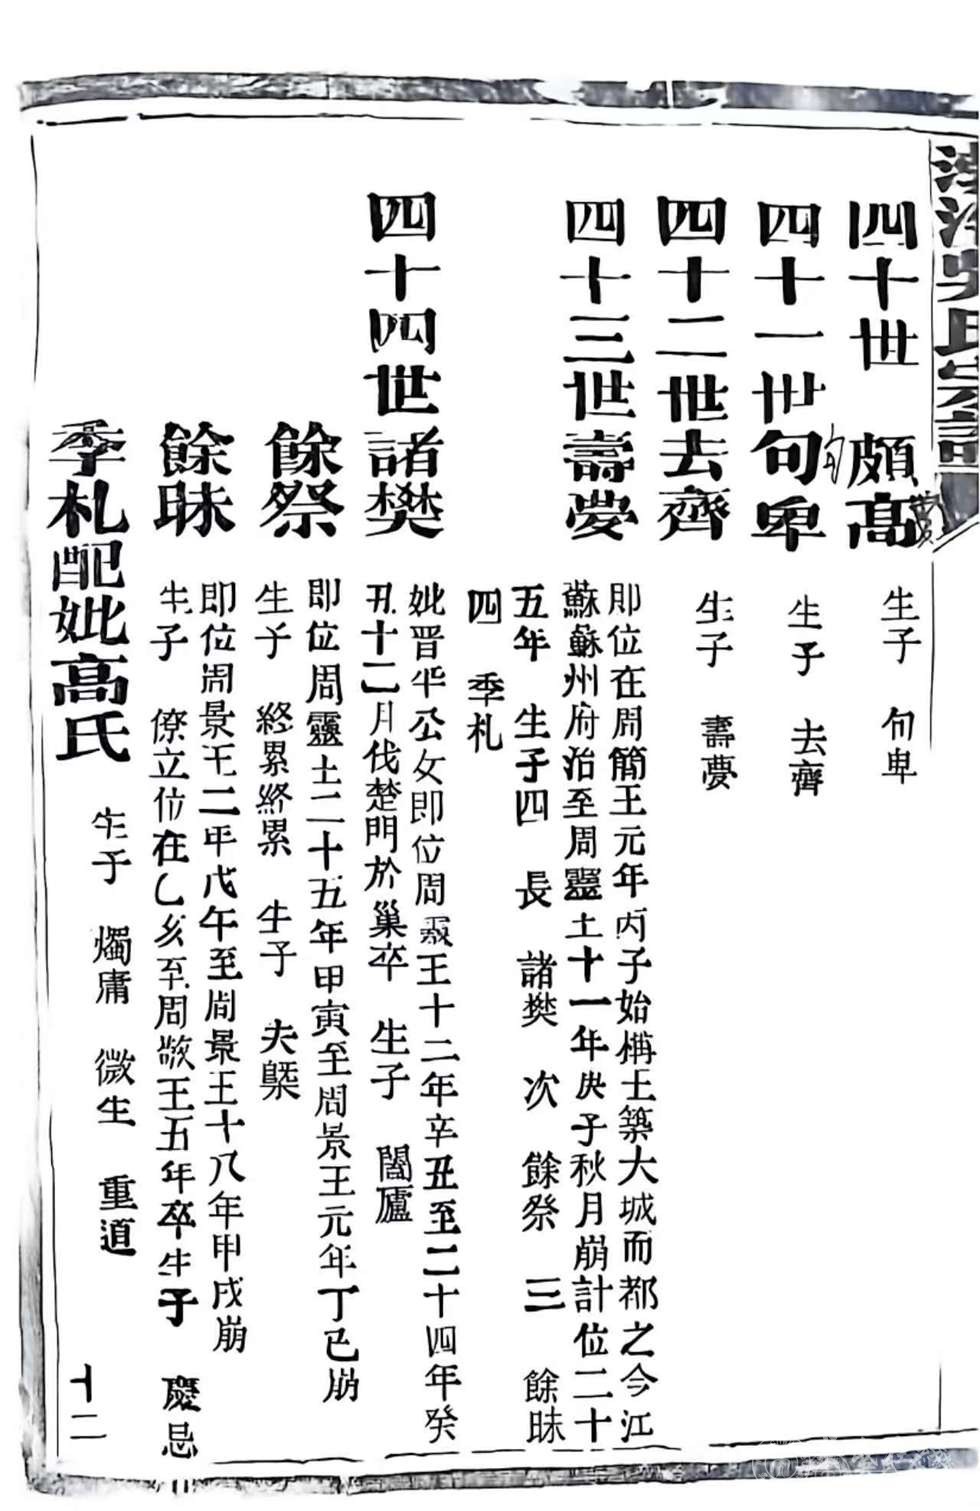 吳氏宗譜
四十世 頗高 生子 句卑
四十一世 句卑 生子 去齊
四十二世 去齊 生子 壽夢
四十三世 壽夢 即位在周簡王元年丙子始稱王築大城而都之今江
蘇蘇州府治至周靈王十一年庚子秋月崩計位二十
五年 生子四 長 諸樊 次 餘祭 三 餘昧
四 季札
四十四世 諸樊 妣晋平公女即位周靈王十二年辛丑至二十四年癸
丑十二月伐楚門於巢卒 生子 闔廬
餘祭 即位周靈王二十五年甲寅至周景王元年丁巳崩
生子 終累終累 生子 夫槩
餘昧 即位周景王二年戊午至周景王十八年甲戌崩
生子 僚立位在乙亥至周敬王五年卒生子 慶忌
季札配妣高氏 生子 燭庸 微生 重道
十二